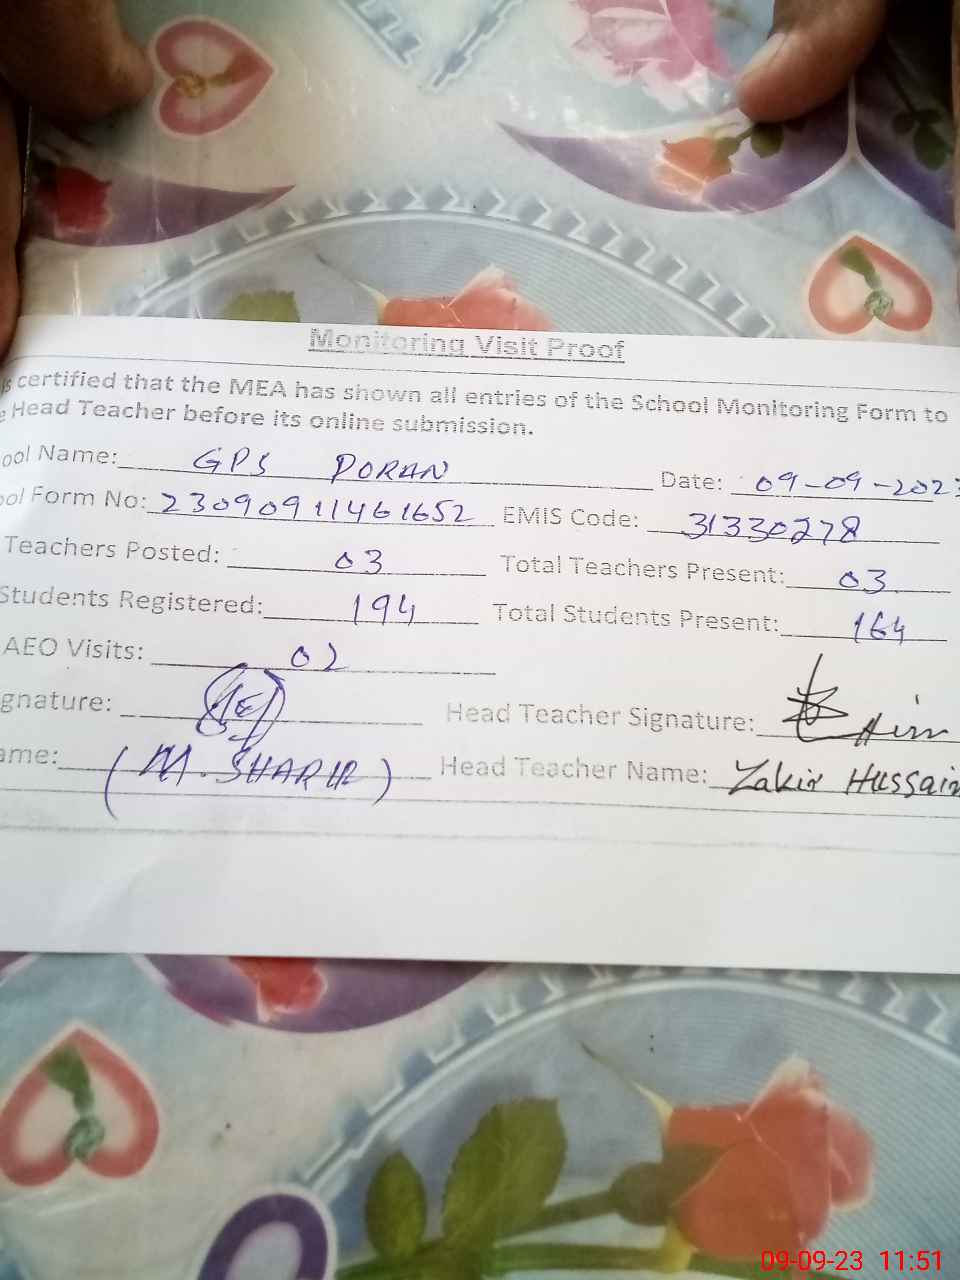 Monitoring Visit Proof
is certified that the MEA has shown all entries of the School Monitoring Form to
e Head Teacher before its online submission.
ool Name: GPS PORAN Date: 09-09-2023
ool Form No: 23090911461652 EMIS Code: 31330278
Teachers Posted: 03 Total Teachers Present: 03
Students Registered: 194 Total Students Present: 164
AEO Visits: 02
gnature: Head Teacher Signature:
ame: (M. SHARIF) Head Teacher Name: Zakir Hussain
09-09-23 11:51